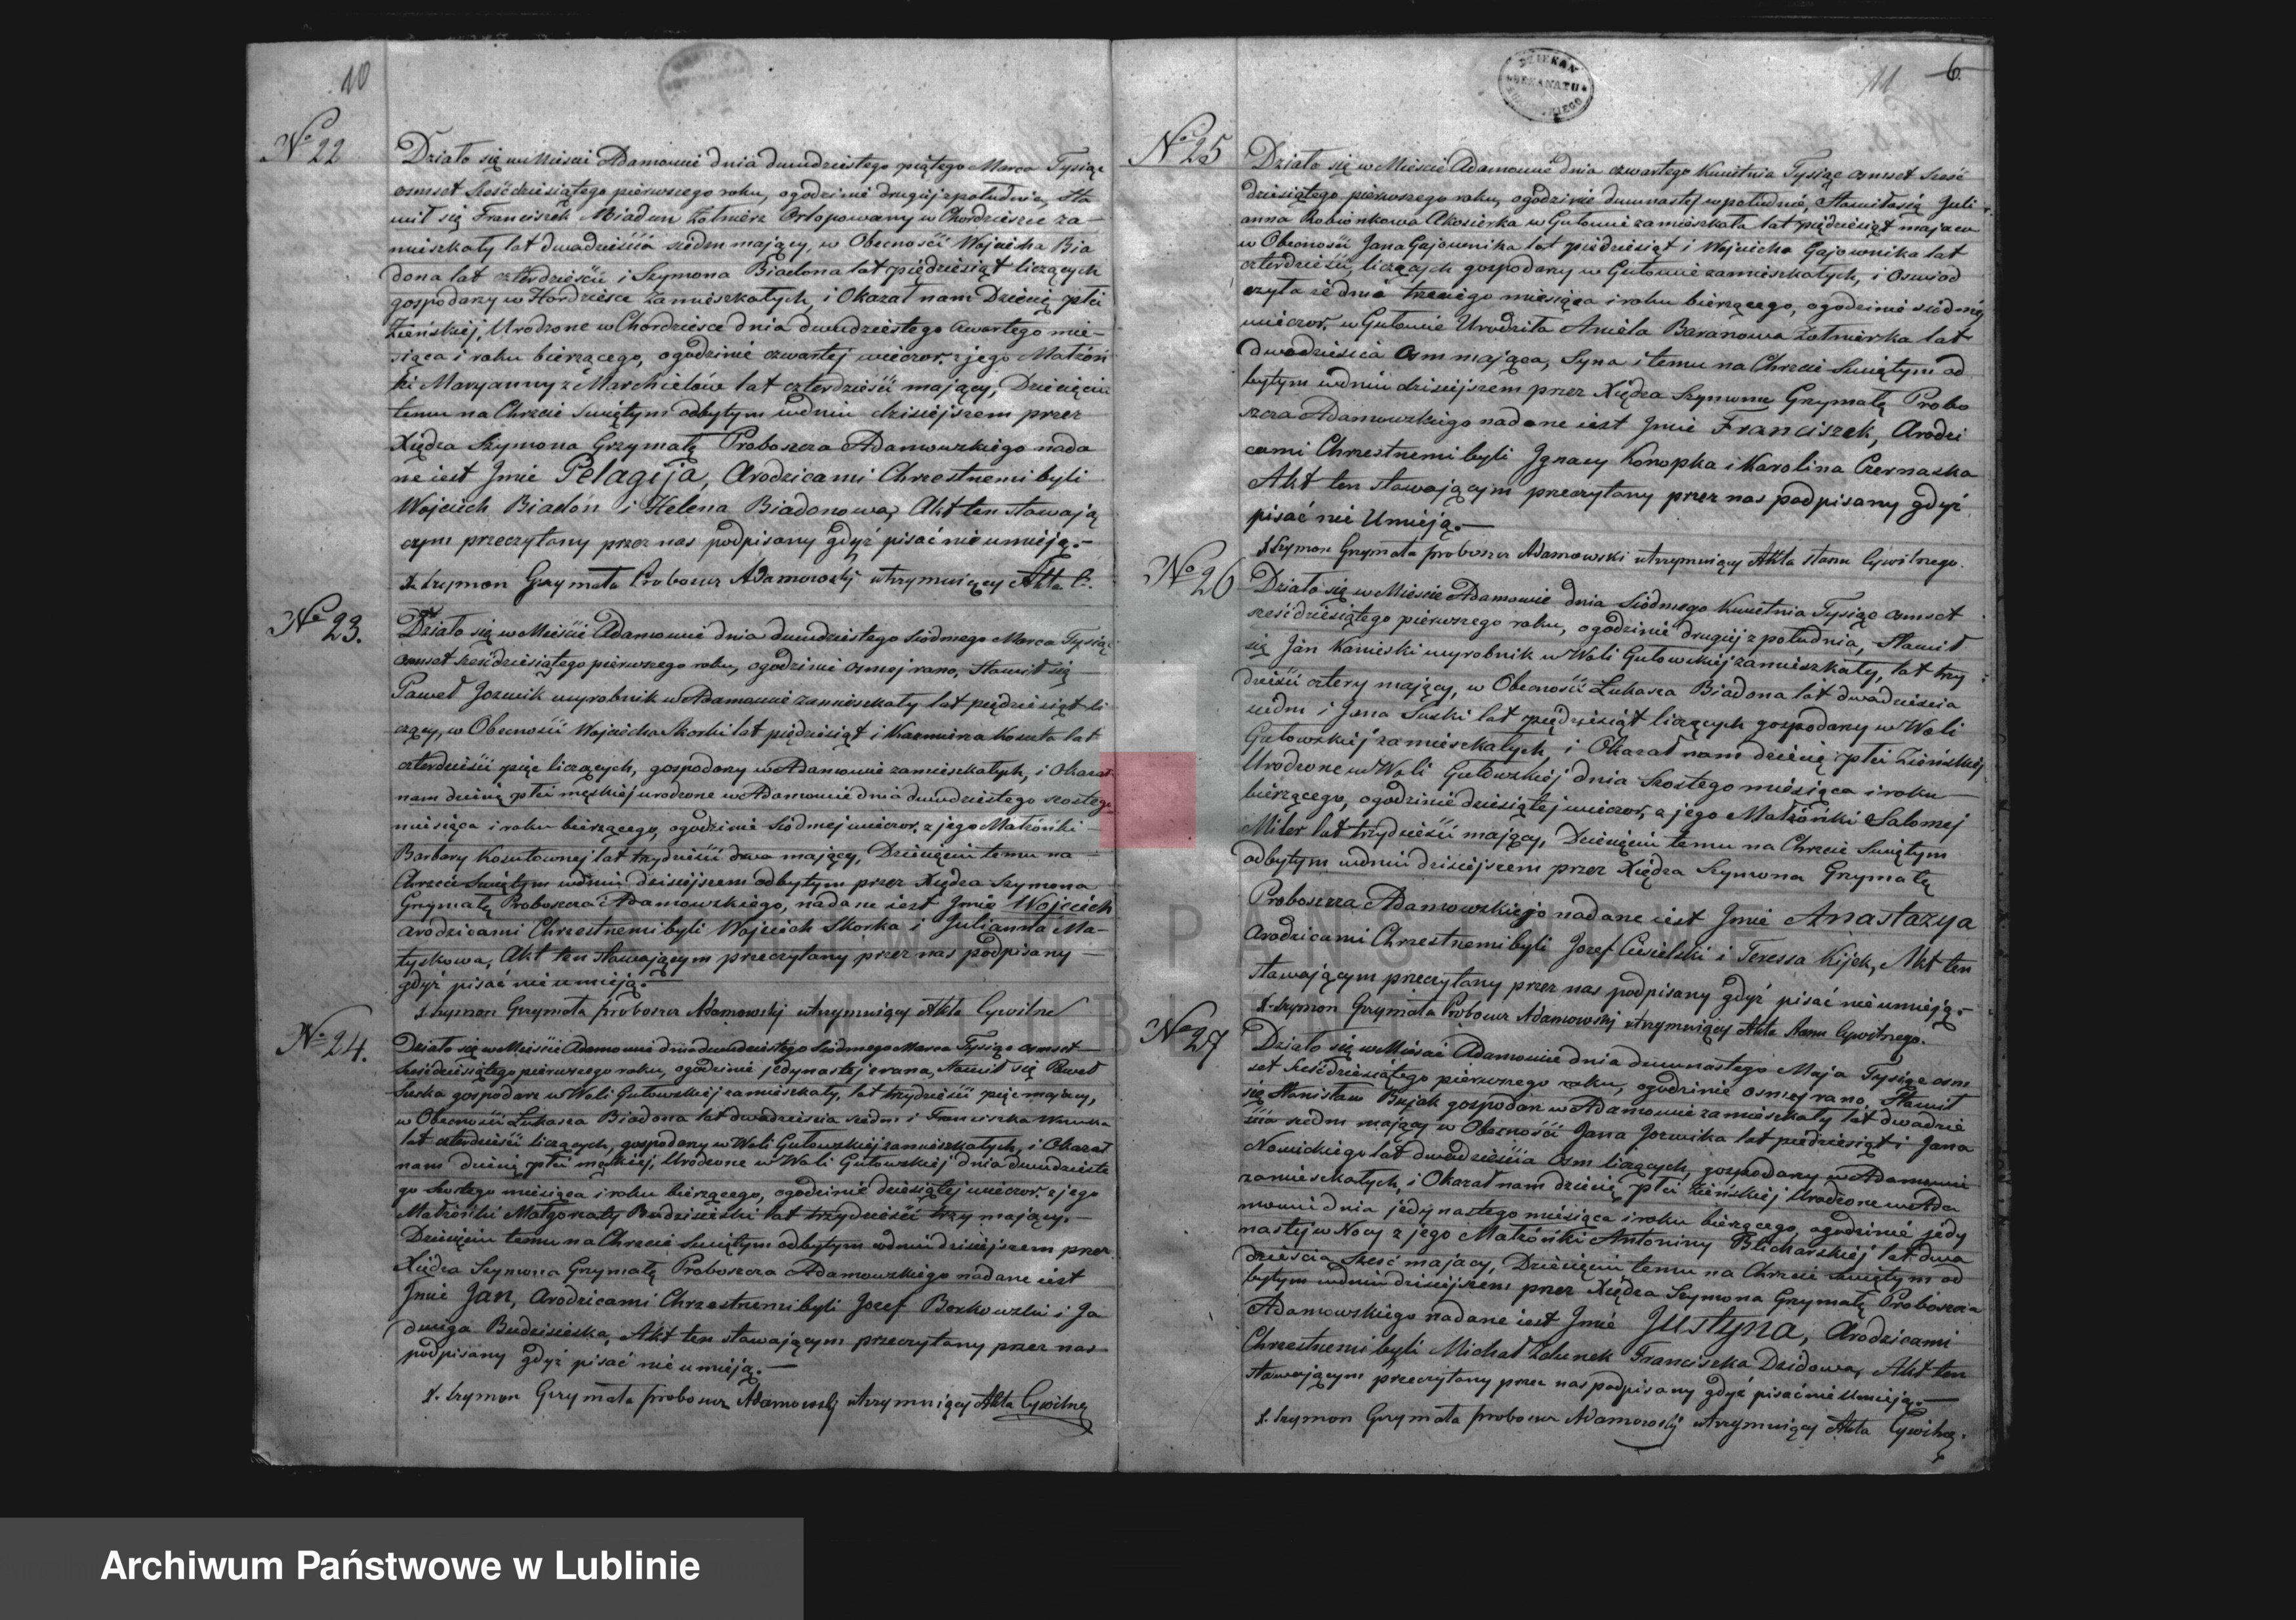 10
No 22
Działo się w Mieście Adamowie dnia dwudziestego piątego Marca Tysiąc
osmset sześćdziesiątego pierwszego roku, ogodzinie drugiej z południa, Sta
wił się Franciszek Biadun Żołnierz Urlopowany w Chordzieszce za-
mieszkały lat dwadzieścia siedm mający, w Obecności Wojciecha Bia
dona lat czterdzieści i Szymona Biadona lat pięćdziesiąt liczących
gospodarzy w Hordziesce zamieszkałych, i Okazał nam Dziecię płci
Żeńskiej, Urodzone w Chordziesce dnia dwudziestego czwartego mie-
siąca i roku bierzącego, ogodzinie czwartej wieczor. z jego Małżon
ki Maryanny z Marchielów lat czterdzieści mający, Dziecięciu
temu na Chrzcie Swiętym odbytym wdniu dzisiejszem przez
Xiędza Szymona Grzymałę Proboszcza Adamowzkiego nada
ne iest Jmie Pelagija, Arodzicami Chrzestnemi byli
Wojciech Biadon i Helena Biadonowa, Akt ten stawają
czym przeczytany przez nas podpisany gdyż pisać nie umieją.-
X. Szymon Grzymała Proboszcz Adamowski utrzymuiący Akta C.
No 23.
Działo się w Mieście Adamowie dnia dwudziestego siodmego Marca Tysiąc
osmset sześćdziesiątego pierwszego roku, ogodzinie osmej rano, stawił się
Paweł Jozwik wyrobnik w Adamowie zamieszkały lat pięćdziesiąt li
czący, w Obecności Wojciecha Skorki lat pięćdziesiąt i Kazmierza Koszuta lat
czterdzieści pięć liczących, gospodarzy w Adamowie zamieszkałych, i Okazał
nam dziecię płci męskiej urodzone w Adamowie dnia dwudziestego szostego
miesiąca i roku bierzącego, ogodzinie siodmej wieczor. z jego Małżonki
Barbary Koszutownej lat trzydzieści dwa mający, Dziecięciu temu na
Chrzcie Swiętym wdniu dzisiejszem odbytym przez Xiędza Szymona
Grzymałę Proboszcza Adamowzkiego, nadane iest Jmie Wojciech
Arodzicami Chrzestnemi byli Wojciech Skorka i Julianna Ma-
tyskowa, Akt ten stawającym przeczytany przez nas podpisany
gdyż pisać nie umieją.-
X Szymon Grzymała proboszcz Adamowski utrzymuiący Akta Cywilne
No 24.
Działo się w Mieście Adamowie dnia dwudziestego Siodmego Marca Tysiąc osmset
sześćdziesiątego pierwszego roku, ogodzinie jedynastej z rana, Stawił się Paweł
Suska gospodarz w Woli Gułowskiej zamieszkały, lat trzydzieści pięć mający,
w Obecności Łukasza Biadona lat dwadzieścia siedm i Franciszka
lat czterdzieści liczących, gospodarzy w Woli Gułowskiej zamieszkałych, i Okazał
nam dziecię płci męskiej, Urodzone w Woli Gułowskiej dnia dwudzieste
go szostego miesiąca i roku bierzącego, ogodzinie dziesiątej wieczor. z jego
Małżonki Małgorzaty Budzisieski lat trzydzieści trzy mający.-
Dziecięciu temu na Chrzcie Swiętym odbytym wdniu dzisiejszem przez
Xiędza Szymona Grzymałę Proboszcza Adamowzkiego nadane iest
Jmie Jan, Arodzicami Chrzestnemi byli Jozef Borkowzki i Ja
dwiga Budzisieska, Akt ten stawającym przeczytany przez nas
podpisany gdyż pisać nie umieją.-
X. Szymon Grzymała proboszcz Adamowski utrzymuiący Akta Cywilne
11 6.
DZIEKAN DEKANATU
No 25
Działo się w Mieście Adamowie dnia czwartego Kwietnia Tysiąc osmset sześć
dziesiątego pierwszego roku, ogodzinie dwunastej w południe, Stawiła się Juli
anna Robionkowa Akuszerka w Gułowie zamieszkała lat pięćdziesiąt mająca
w Obecności Jana Gajownika lat pięćdziesiąt i Wojciecha Gajownika lat
czterdzieści, liczących gospodarzy w Gułowie zamieszkałych, i Oswiad
czyła że dnia trzeciego miesiąca i roku bierzącego, ogodzinie siodmej
wieczor. w Gułowie Urodziła Aniela Baranowa Żołnierka lat
dwadziescia osm mająca, Syna i temu na Chrzcie Swiętym od
bytym wdniu dzisiejszem przez Xiędza Szymona Grzymałę Probo
szcza Adamowzkiego nadane iest Jmie Franciszek, Arodzi
cami Chrzestnemi byli Jgnacy Konopka i Karolina Czernaska
Akt ten stawającym przeczytany przez nas podpisany gdyż
pisać nie Umieją.-
X Szymon Grzymała proboszcz Adamowski utrzymuiący Akta stanu Cywilnego.
No 26
Działo się w Mieście Adamowie dnia Siodmego Kwietnia Tysiąc osmset
sześćdziesiątego pierwszego roku, ogodzinie drugiej z południa, Stawił
się Jan Kanieski wyrobnik w Woli Gułowskiej zamieszkały, lat trzy
dzieści cztery mający, w Obecności Łukasza Biadona lat dwadzieścia
siedm i Jana Suski lat pięćdziesiąt liczących gospodarzy w Woli
Gułowskiej zamieszkałych, i Okazał nam dziecię płci Żeńskiej
Urodzone w Woli Gułowzkiej dnia Szostego miesiąca i roku
bierzącego, ogodzinie dziesiątej wieczor, z jego Małżonki Salomej
Miler lat trzydzieści mający, Dziecięciu temu na Chrzcie Swiętym
odbytym wdniu dzisiejszem przez Xiędza Szymona Grzymałę
Proboszcza Adamowzkiego nadane iest Jmie Anastazya
Arodzicami Chrzestnemi byli Jozef Cisielski i Teressa Kijek, Akt ten
stawającym przeczytany przez nas podpisany gdyż pisać nie umieją.-
X. Szymon Grzymała Proboszcz Adamowski utrzymuiący Akta Stanu Cywilnego.
No 27
Działo się w Mieście Adamowie dnia dwunastego Maja Tysiąc osm
set sześćdziesiątego pierwszego roku, ogodzinie osmej rano, Stawił
się Stanisław Bujak gospodarz w Adamowie zamieszkały lat dwadzie
ścia siedm mający w Obecności Jana Jozwika lat pięćdziesiąt i Jana
Nowickiego lat dwadzieścia osm liczących, gospodarzy w Adamowie
zamieszkałych, i Okazał nam dziecię płci żeńskiej Urodzone w Ada
mowie dnia jedynastego miesiąca i roku bierzącego, ogodzinie jedy
nastej w Nocy z jego Małżonki Antoniny Blicharskiej lat dwa
dzieścia sześć mający, Dziecięciu temu na Chrzcie Swiętym od
bytym wdniu dzisiejszem przez Xiędza Szymona Grzymałę Proboszcza
Adamowskiego nadane iest Jmie Justyna, Arodzicami
Chrzestnemi byli Michał Zdunek Franciszka Dzidowa, Akt ten
stawającym przeczytany przez nas podpisany gdyż pisać nie Umieją.-
X. Szymon Grzymała proboszcz Adamowski utrzymuiący Akta Cywilne.
Archiwum Państwowe w Lublinie